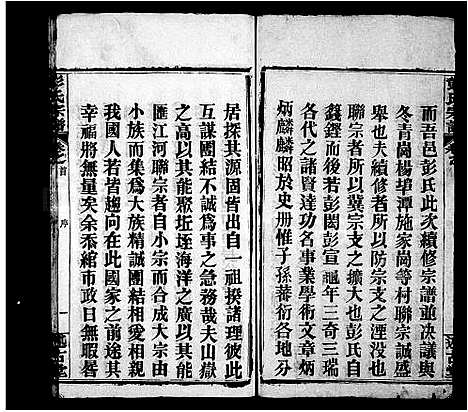 而吾邑彭氏此次續修宗譜並决議與
冬青崗楊埠潭施家崗等村聯宗誠盛
舉也夫續修者所以防宗支之湮没也
聯宗者所以冀宗支之擴大也彭氏自
籛鏗而後若彭閎彭宣
年三奇三瑞
各代之諸賢達功名事業學術文章炳
炳麟麟昭於史册惟子孫蕃衍各地分
居探其源固皆出自一祖揆諸理彼此
互謀團結不誠爲事之急務哉夫山嶽
之高以其能聚坵垤海洋之廣以其能
匯江河聯宗者自小宗而合成大宗由
小族而集爲大族精誠團結相愛相親
我國人若皆趨向在此國家之前途其
幸福將無量矣余忝綰市政日無暇晷
彭氏宗譜
卷之首
序
一
述古堂